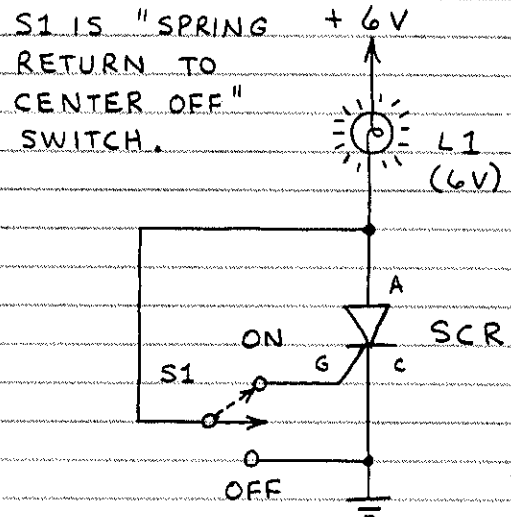 S1 IS "SPRING
RETURN TO
CENTER OFF"
SWITCH.
+ 6V
L1
(6V)
A
SCR
ON
G
C
S1
OFF